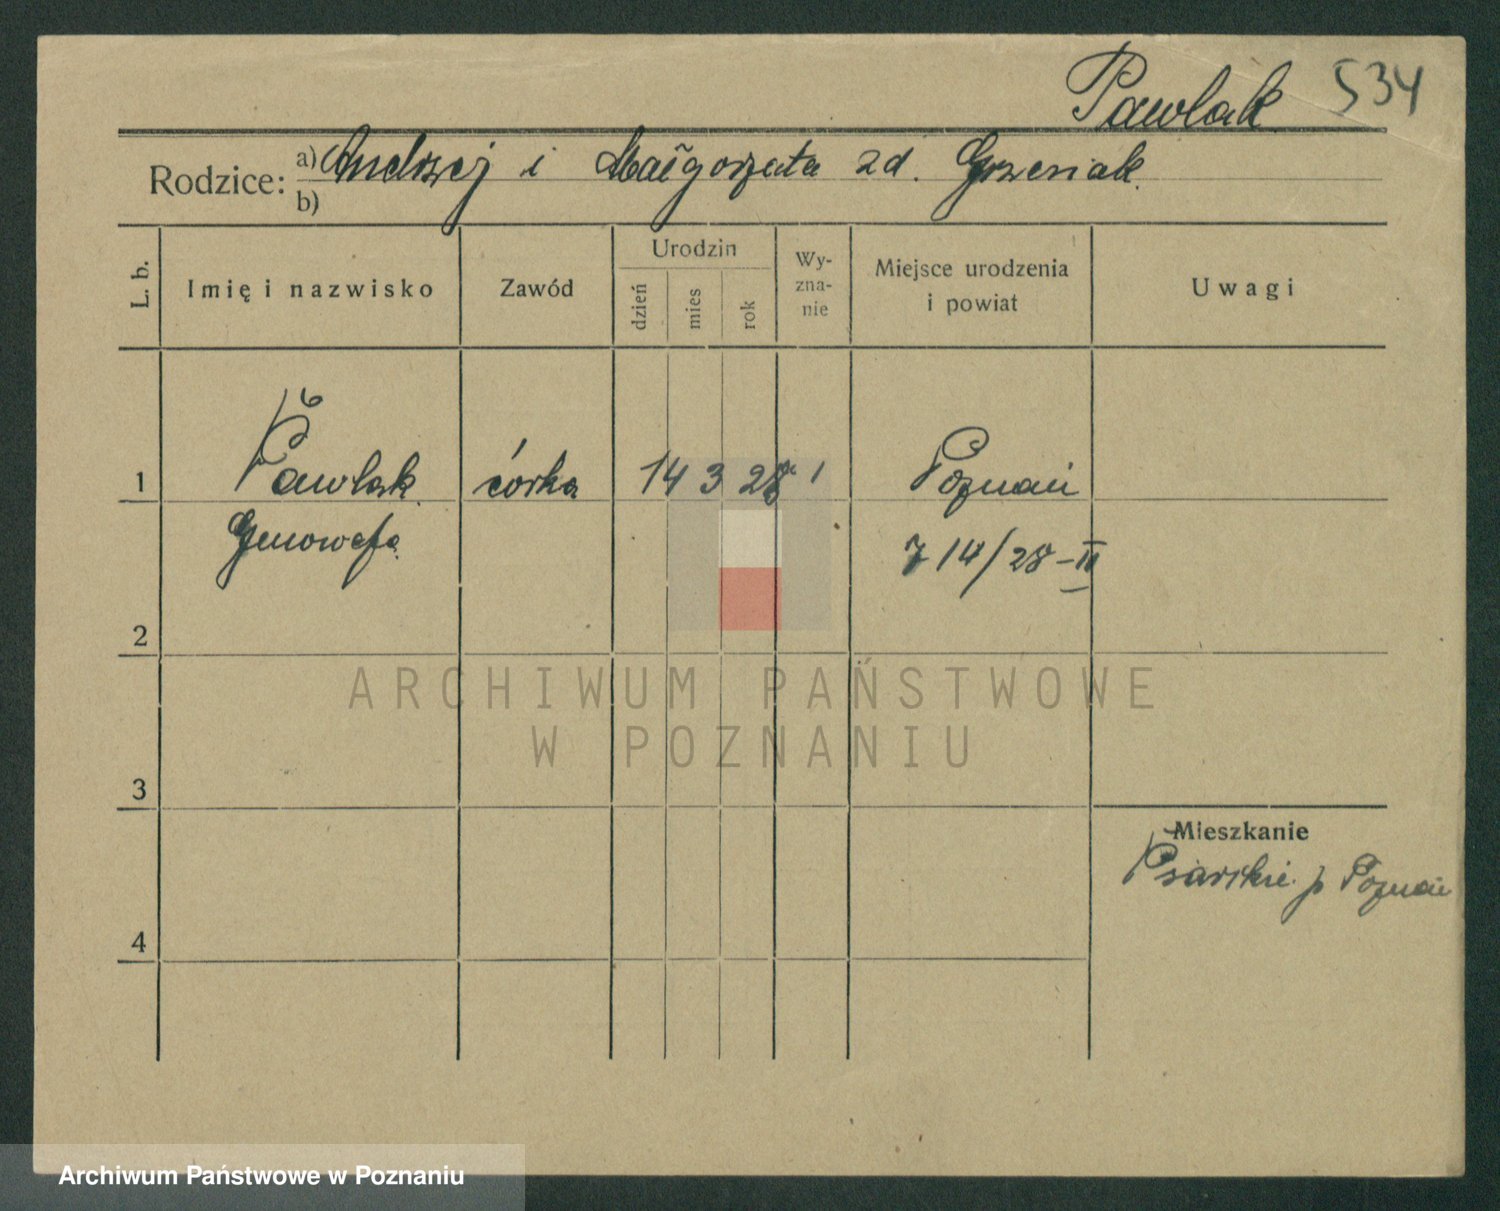 Pawlak 534
Rodzice: a) Andrzej i Małgorzata zd. Grzesiak.
b)
L. b.
Imię i nazwisko
Zawód
Urodzin
dzień
mies
rok
Wy-
zna-
nie
Miejsce urodzenia
i powiat
Uwagi
1 Pawlak córka 14 3 28 Poznań
Genowefa 714/28-III
2
ARCHIWUM PAŃSTWOWE
W POZNANIU
3
Mieszkanie
Psarskie p Poznań
4
Archiwum Państwowe w Poznaniu